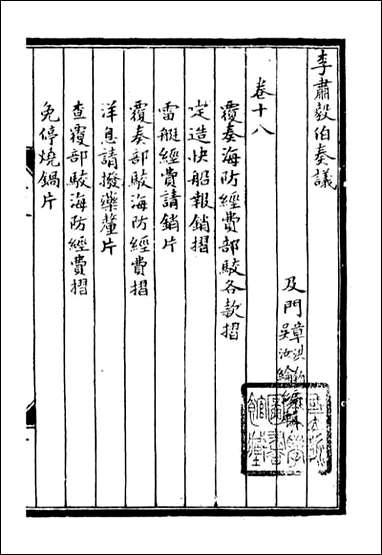 李肅毅伯奏議
及門
章洪鈞
吳汝綸
編輯
卷十八
覆奏海防經費部駮各款摺
定造快船報銷摺
雷艇經費請銷片
覆奏部駮海防經費摺
洋息請撥藥釐片
查覆部駮海防經費摺
免停燒鍋片